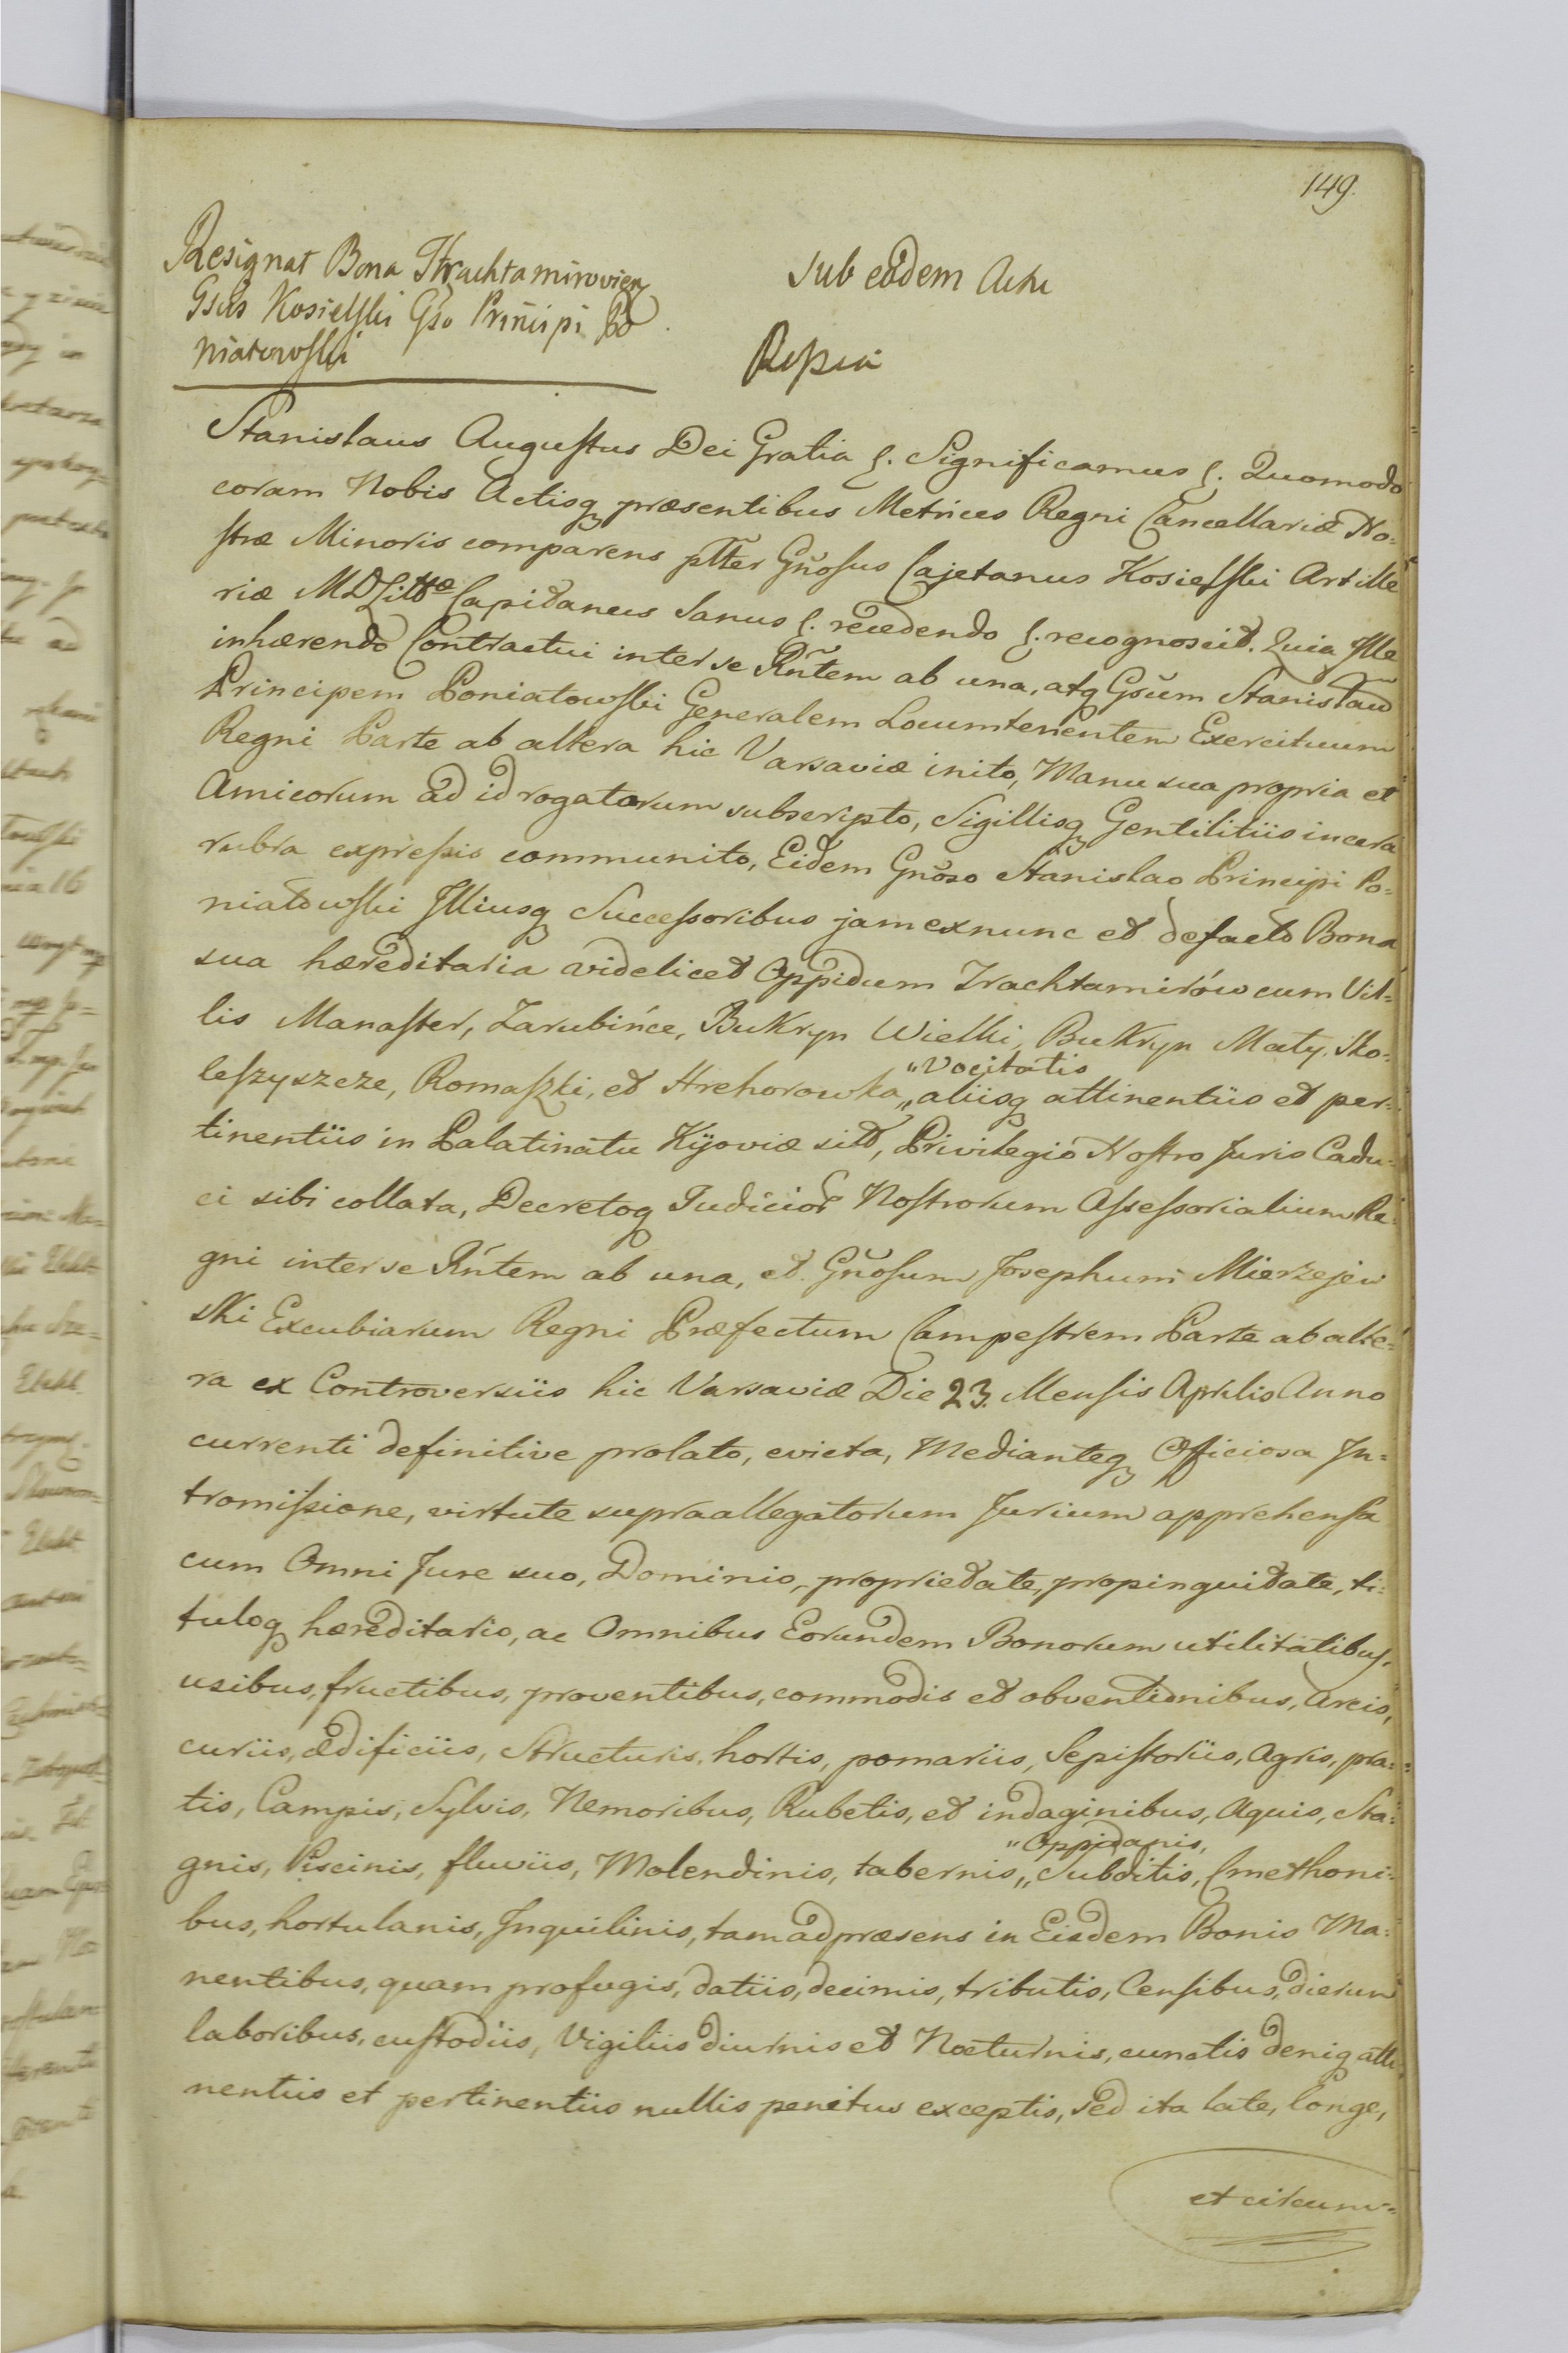 149.
Resignat Bona Thrachtamirovien
Gsus Kosielski Gso Principi Po
niatowski
sub eodem Actu
Stanislaus Augustus Dei Gratia &. Significamus &. Quomodo
coram Nobis Actisq præsentibus Metrices Regni Cancellariæ No-
stræ Minoris comparens pltter Gnosus Cajetanus Kosielski Artille
riæ MDLittæ Capitaneus Sanus &. recedendo &. recognoscit. Quia Ille
inhærendo Contractui inter se Rñtem ab una, atq Gsum Stanislaum
Principem Poniatowski Generalem Locumtenentem Exercituum
Regni Parte ab altera hic Varsaviæ inito, Manu sua propria et
Amicorum ad id rogatorum subscripto, Sigillisq Gentilitiis in cera
rubra expressis communito, Eidem Gnoso Stanislao Principi Po-
niatowski Illiusq Successoribus jam exnunc et de facto Bona
sua hæreditaria videlicet Oppidum Trachtamirów cum Vil-
lis Manaster, Zarubińce, Bukryn Wielki, Bukryn Mały, Sko-
leszyszcze, Romaszki, et Hrehorowka „Vocitatis
„aliisq attinentiis et per-
tinentiis in Palatinatu Kijoviæ sita, Privilegio Nostro Juris Cadu-
ci sibi collata, Decretoq Judicior Nostrorum Assessorialium Re-
gni inter se Rñtem ab una, et Gnosum Josephum Mierzejew
ski Excubiarum Regni Præfectum Campestrem Parte ab alte-
ra ex Controversiis hic Varsaviæ Die 23. Mensis Aprilis Anno
currenti definitive prolato, evicta, Medianteq Officiosa In-
tromissione, virtute supraallegatorum Jurium apprehensa
cum Omni Jure suo, Dominio, proprietate, propinquitate, ti-
tuloq hæreditario, ac Omnibus Eorundem Bonorum utilitatibus,
usibus, fructibus, proventibus, commodis et obventionibus, Areis,
curiis, ædificiis, Structuris, hortis, pomariis, Sepistoriis, Agris, pra-
tis, Campis, Sylvis, Nemoribus, Rubetis, et indaginibus, Aquis, Sta-
gnis, Piscinis, fluviis, Molendinis, tabernis „Oppidanis,
„Subditis, Cmethoni-
bus, hortulanis, Inquilinis, tam ad præsens in Eisdem Bonis Ma-
nentibus, quam profugis, datiis, decimis, tributis, Censibus, dierum
laboribus, custodiis, Vigiliis diurnis et Nocturnis, cunctis deniq atti
nentiis et pertinentiis nullis penitus exceptis, sed ita late, longe,
et circum-